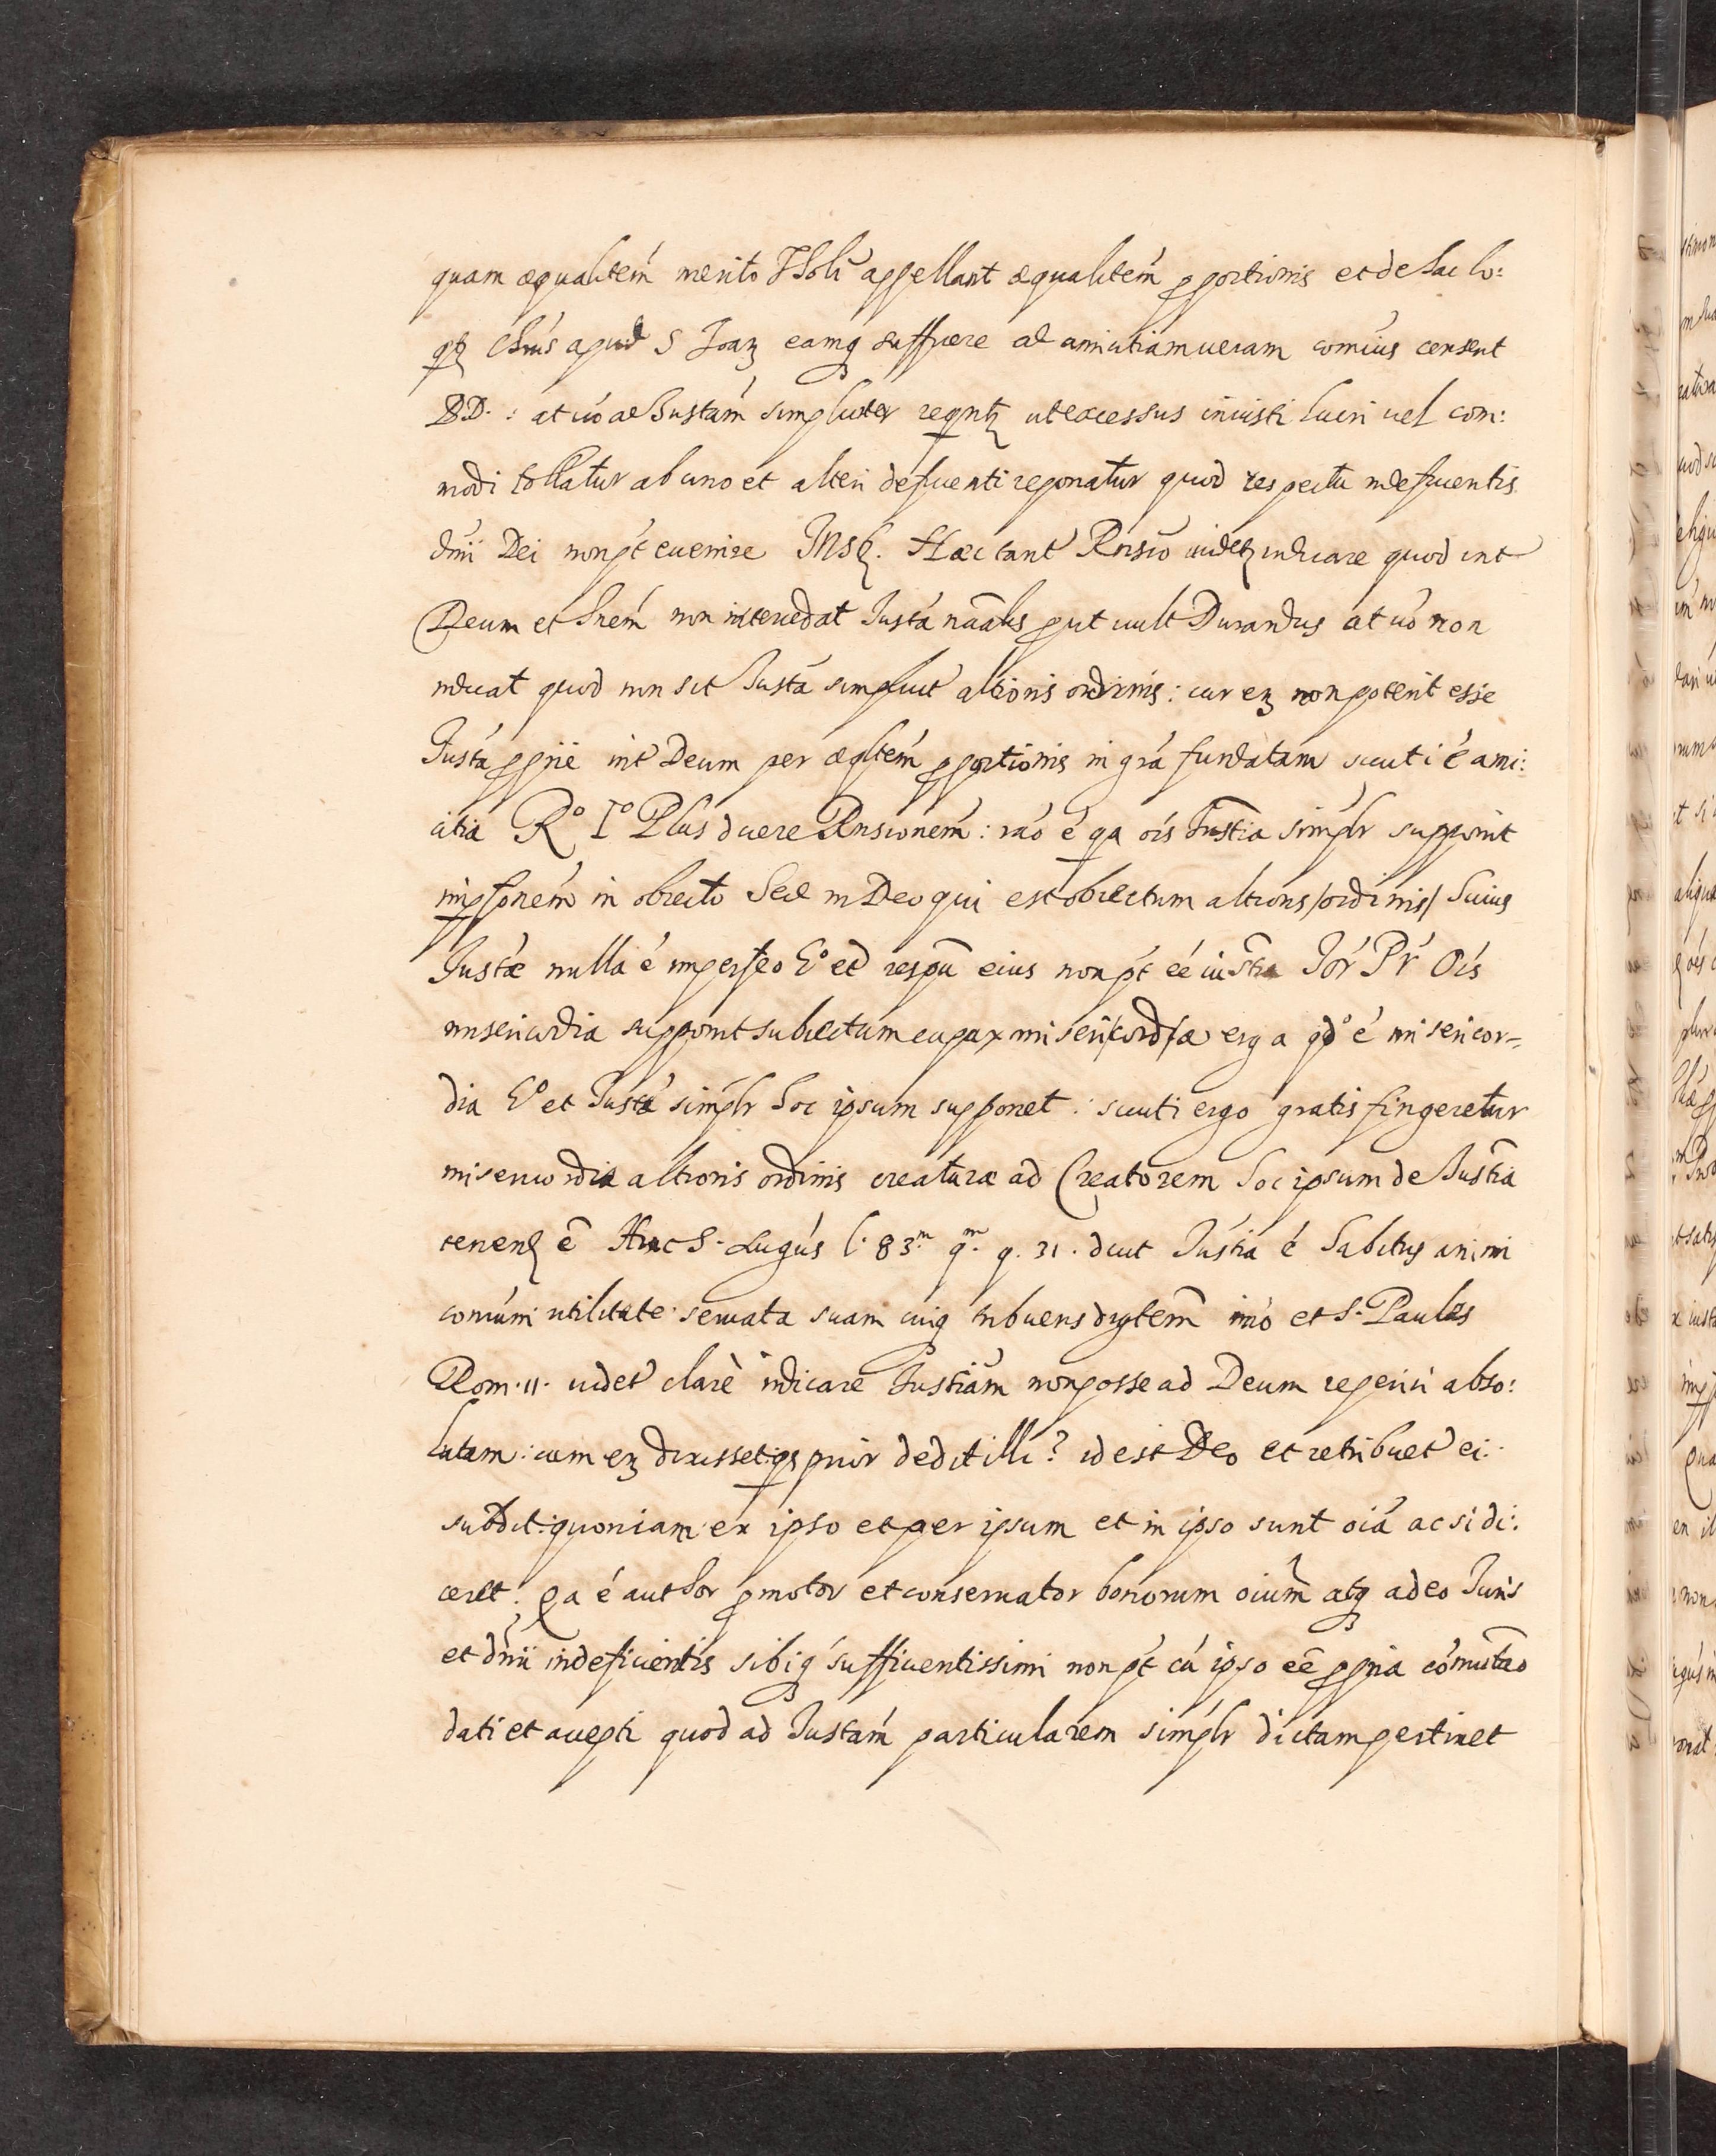 quam æqualitem̃ merito Theoli appellant æqualitem̃ pportionis et de hac lo:
qtz Chr̃us apud S Joãz eamq sufficere ad amicitiam ueram com̃ius censent
DD. : at uo ad Iustam̃ simpliciter reqrñtz ut excessus iniusti lucri uel com:
modi tollatur ab uno et alteri deficienti reponatur quod respectu indeficientis
dñii Dei non pt̃ euenire Inst. Hæc tant̃ Rñsio uidetz indicare quod int
Deum et hoem̃ non intercedat Iustã nãalis put uult Durandus at uo non
indicat quod non sit Iustã simplicit altioris ordinis : cur ez non poterit esse
Iustã pprie int Deum per æqltem̃ pportionis in grã fundatam sicuti ẽ ami:
citia Rº Iº Plus dicere Rñsionem̃ : rão ẽ qa ois Iustia simplr̃ supponit
imperfonem̃ in obiecto sed in Deo qui est obiectum altioris /ordinis/ huius
Iustæ nulla ẽ imperfeo Eº et respũ eius non pt̃ eẽ iustĩa Iõr Pr̃ Ois
misericordia supponit subiectum capax miseri/cord/æ erga qdº ẽ misericor=
dia Eº et Iustã simplr̃ hoc ipsum supponet : sicuti ergo gratis fingeretur
misericordia altioris ordinis creaturæ ad Creatorem hoc ipsum de Iustĩa
tenend̃ ẽ Hinc S. Augũs l. 83.m q.m q. 31. dicit Iustĩa ẽ habitus animi
com̃uni utilitate seruata suam cuiq tribuens digtem̃ imõ et S. Paulus
Rom. 11. uidet clarè indicare Iustiam̃ non posse ad Deum reperiri abso:
lutam : cum ez dixisset : qs prior dedit illi? id est Deo et retribuet ei :
subdit : quoniam ex ipso et per ipsum et in ipso sunt oiã ac si di:
ceret : qa ẽ author pmotor et conseruator bonorum oium̃ atq adeo Iuris
et dñii indeficientis sibiq sufficientissimi non pt̃ cũ ipso eẽ ppria cõmutão
dati et accepti quod ad Iustam̃ particularem simplr̃ dictam pertinet